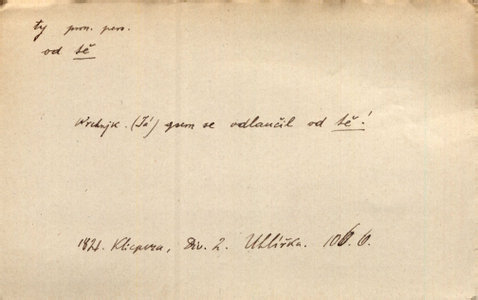 ty pron. pers.
od tě
(Já) gsem se odlaučil od tě!
1821. Klicpera, Div. 2. Uhlířka. 106. 6.